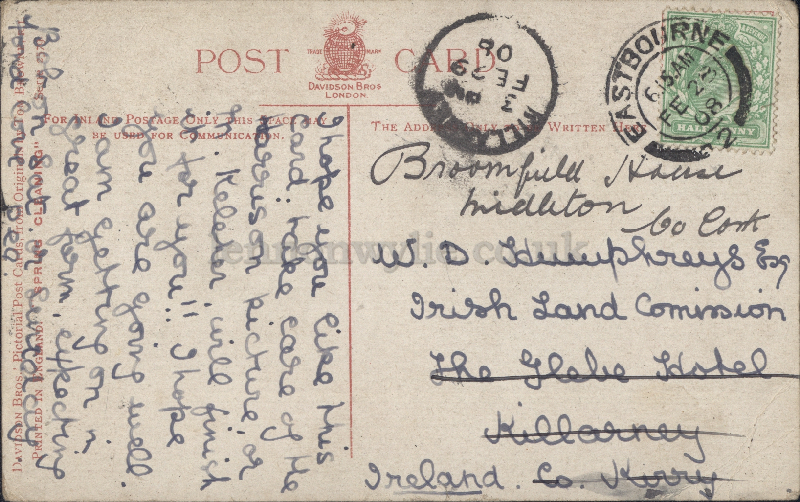 POST CARD
TRADE MARK
DAVIDSON BROS
LONDON.
FOR INLAND POSTAGE ONLY THIS SPACE MAY
BE USED FOR COMMUNICATION.
THE ADDRESS ONLY WRITTEN HERE
I hope you like this
Card; take care of the
Harrison picture, or
Mr. Keleher will finish
it for you!! I hope
you are going well.
I am getting on in
great form, expecting
on Sat.
love
DAVIDSON BROS.' Pictorial Post Cards, from Originals by Tom Browne
PRINTED IN ENGLAND. "SPRING CLEANING"
EASTBOURNE
6.15 AM
FE 23
08
HALFPENNY
FE 29
08
Broomfield House
Midleton
Co Cork
W. D. Humphreys Esq
Irish Land Comission
The Glebe Hotel
Killarney
Ireland. Co. Kerry
lennonwylie.co.uk